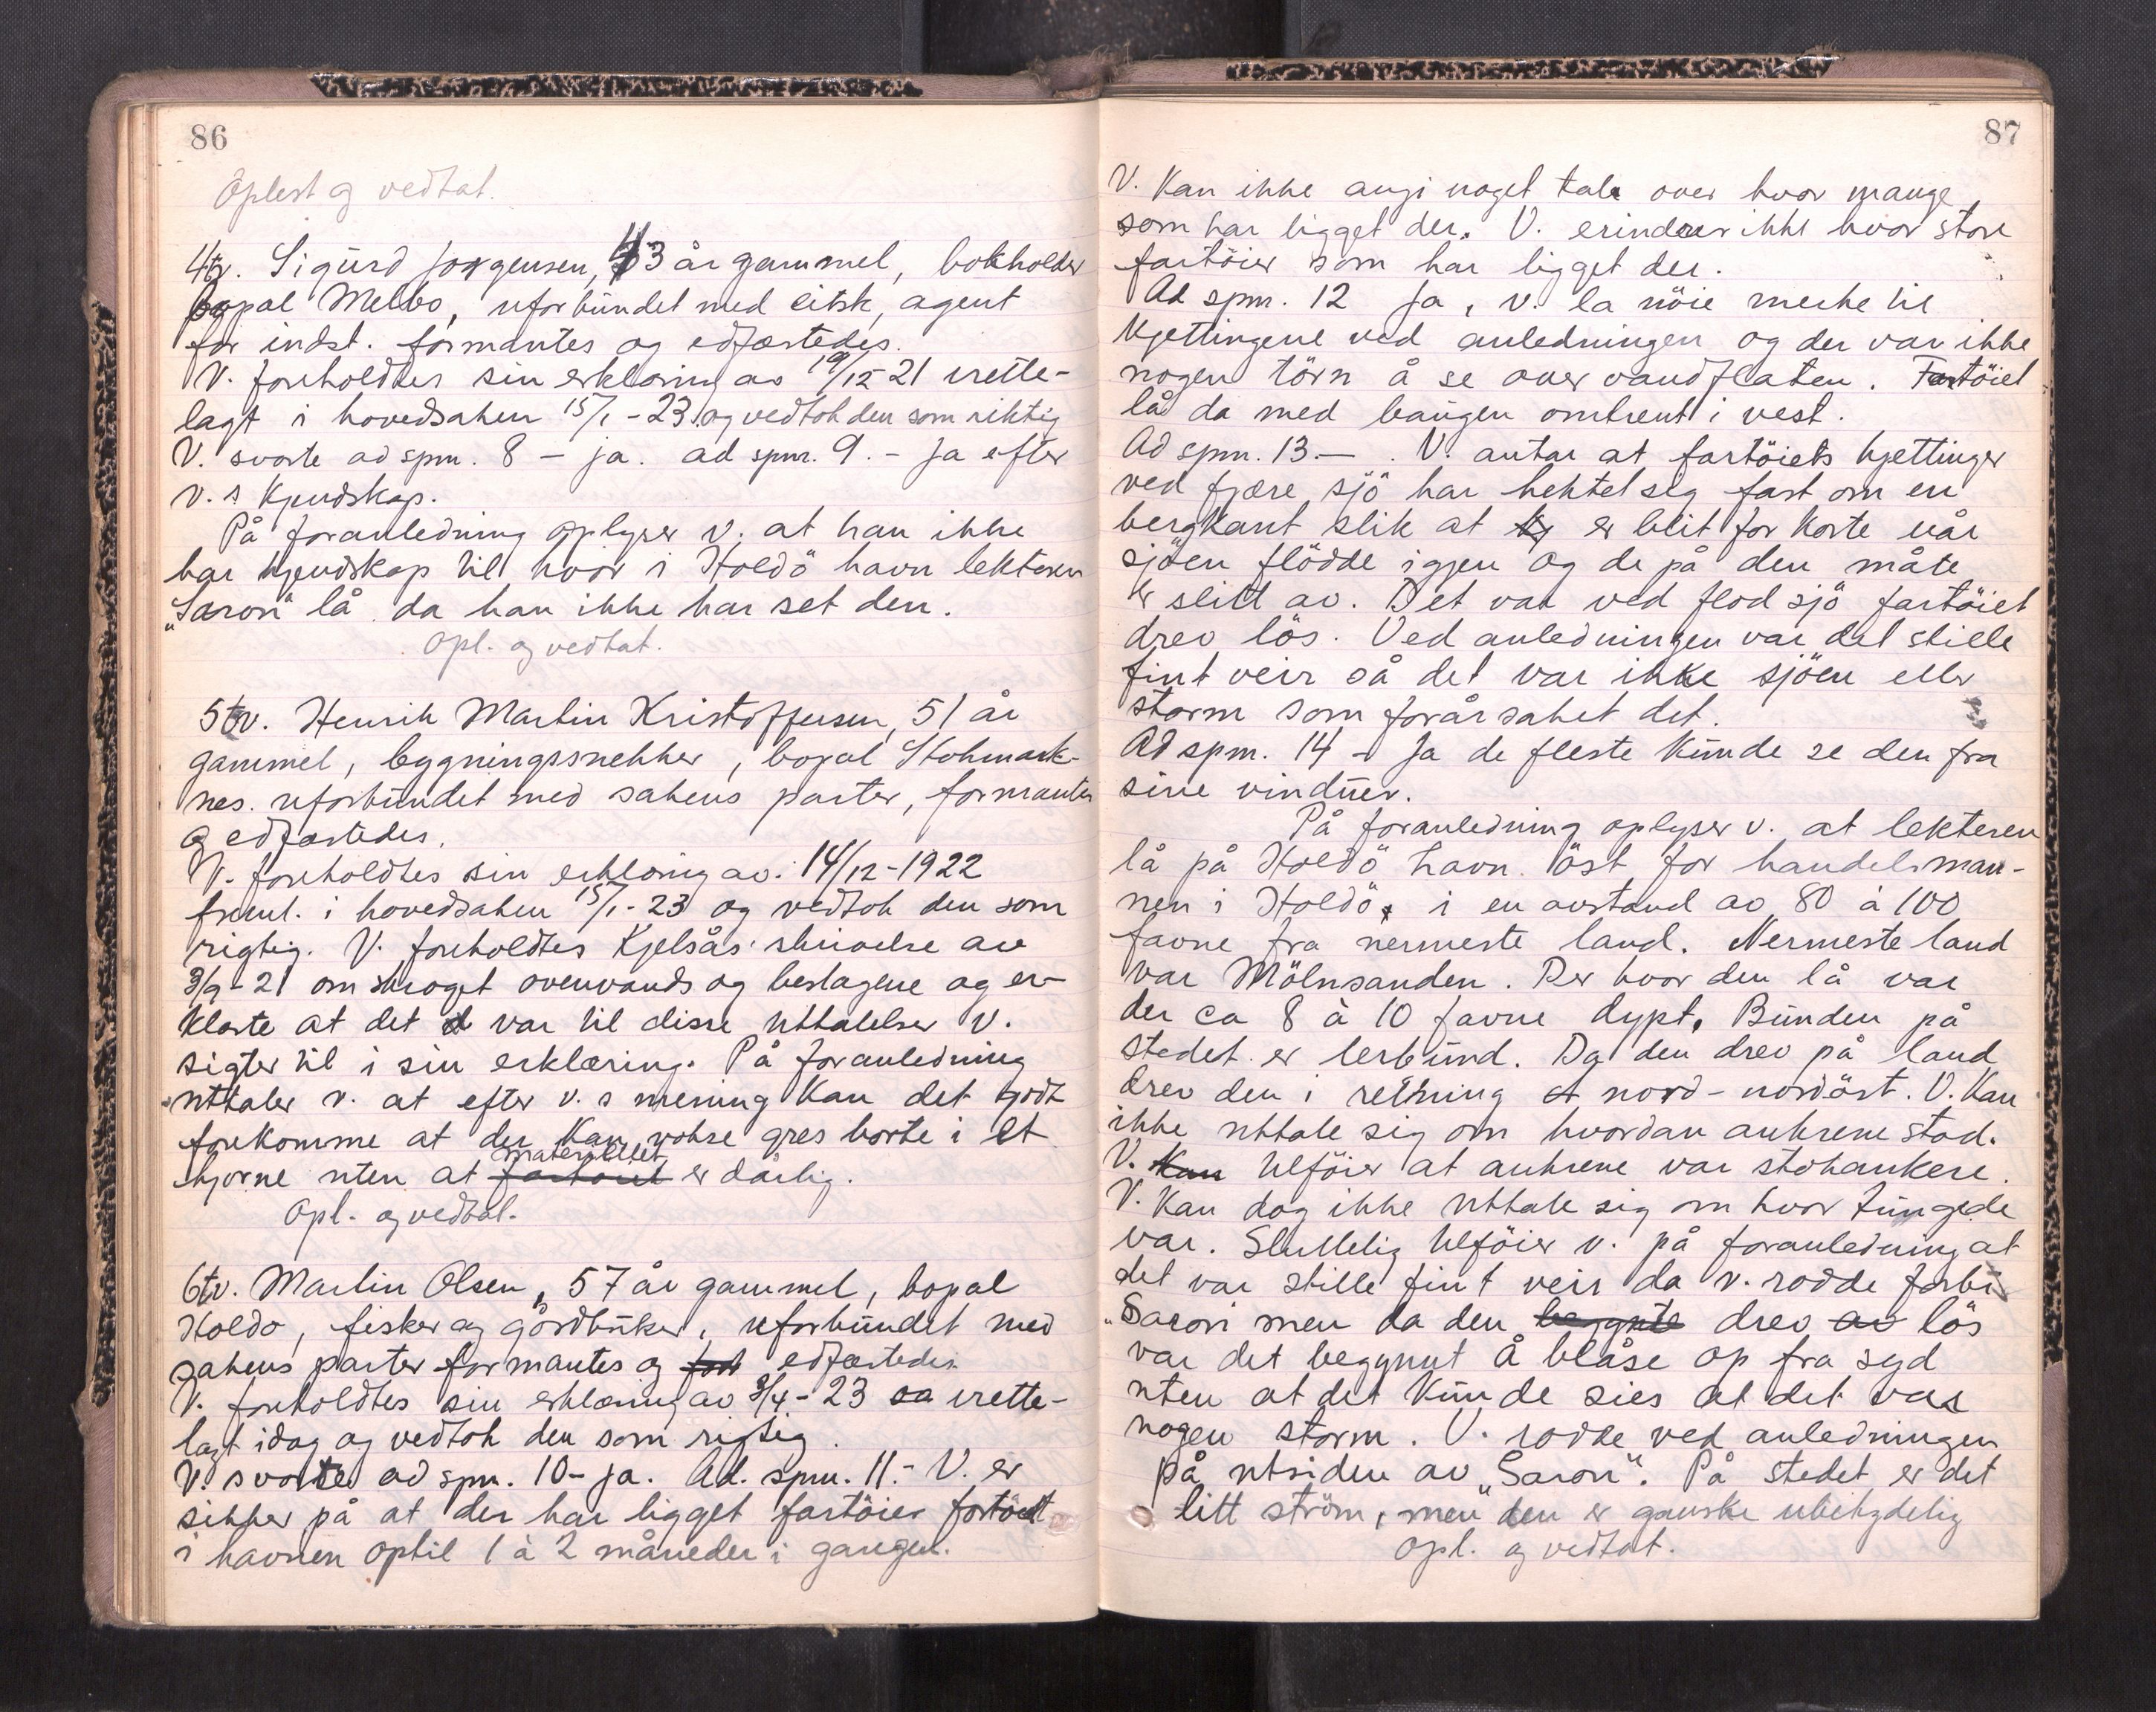 86
Oplest og vedtat.
4tv. Sigurd Jørgensen, 43 år gammel, bokholder
bopal Melbo, uforbundet med citsk, agent
for indst. formantes og edfæstedes.
V. foreholdtes sin erklæring av 19/12-21 irette-
lagt i hovedsaken 15/1-23 og vedtok den som riktig
V. svarte ad spm. 8 - ja. ad spm. 9. - Ja efter
v.s kjendskap.
På foranledning oplyser v. at han ikke
har kjendskap til hvor i Holdö havn lekteren
"Saron" lå da han ikke har set den.
Opl. og vedtat.
5tv. Henrik Martin Kristoffersen, 51 år
gammel, bygningssnekker, bopal Stokmark-
nes. uforbundet med sakens parter, formantes
og edfæstedes.
V. foreholdtes sin erklæring av 14/12-1922
freml. i hovedsaken 15/1-23 og vedtok den som
rigtig. V. foreholdtes Kjelsås' skrivelse av
3/9-21 om skroget ovenvands og beslagene og er-
klærte at det var til disse uttalelser v.
sigter til i sin erklæring. På foranledning
uttaler v. at efter v.s mening kan det godt
forekomme at der kan vokse gres borte i et
hjørne uten at materialet fartöiet er dårlig.
Opl. og vedtat.
6tv. Martin Olsen, 57 år gammel, bopal
Holdö, fisker og gårdbruker, uforbundet med
sakens parter formantes og edfæstedes
V. foreholdtes sin erklæring av 3/4-23 irette-
lagt idag og vedtok den som rigtig.
V. svarte ad spm. 10- ja. Ad. spm. 11.- V. er
sikker på at der har ligget fartöier fortöiet
i havnen optil 1 à 2 måneder i gangen.
87
V. kan ikke angi noget tale over hvor mange
som har ligget der. V. erindrer ikke hvor store
fartöier som har ligget der.
Ad spm. 12 Ja, v. la nöie merke til
kjettingene ved anledningen og der var ikke
nogen törn å se over vandflaten. Fartöiet
lå da med baugen omtrent i vest.
Ad spm. 13.— . V. antar at fartöiets kjettinger
ved fjære sjö har hektet seg fast om en
bergkant slik at kj er blit for korte når
sjöen flödde igjen og de på den måte
er slitt av. Det var ved flod sjö fartöiet
drev lös. Ved anledningen var det stille
fint veir så det var ikke sjöen eller
storm som forårsaket det.
Ad spm. 14 - Ja de fleste kunde se den fra
sine vinduer.
På foranledning oplyser v. at lekteren
lå på Holdö havn öst for handelsman-
nen i Holdö, i en avstand av 80 à 100
favne fra nermeste land. Nermeste land
var Mölnsanden. Der hvor den lå var
der ca 8 à 10 favne dypt. Bunden på
stedet er lerbund. Da den drev på land
drev den i retning nord-nordöst. V. kan
ikke uttale sig om hvordan ankrene stod.
V. kan tilföier at ankrene var stokankere.
V. kan dog ikke uttale sig om hvor tunge de
var. Sluttelig tilföier v. på foranledning at
det var stille fint veir da v. rodde forbi
"Saron men da den begynte drev av lös
var det begynt å blåse op fra syd
uten at det kunde sies at det var
nogen storm. V. rodde ved anledningen
på utsiden av "Saron". På stedet er det
litt ström, men den er ganske ubetydelig
Opl. og vedtat.